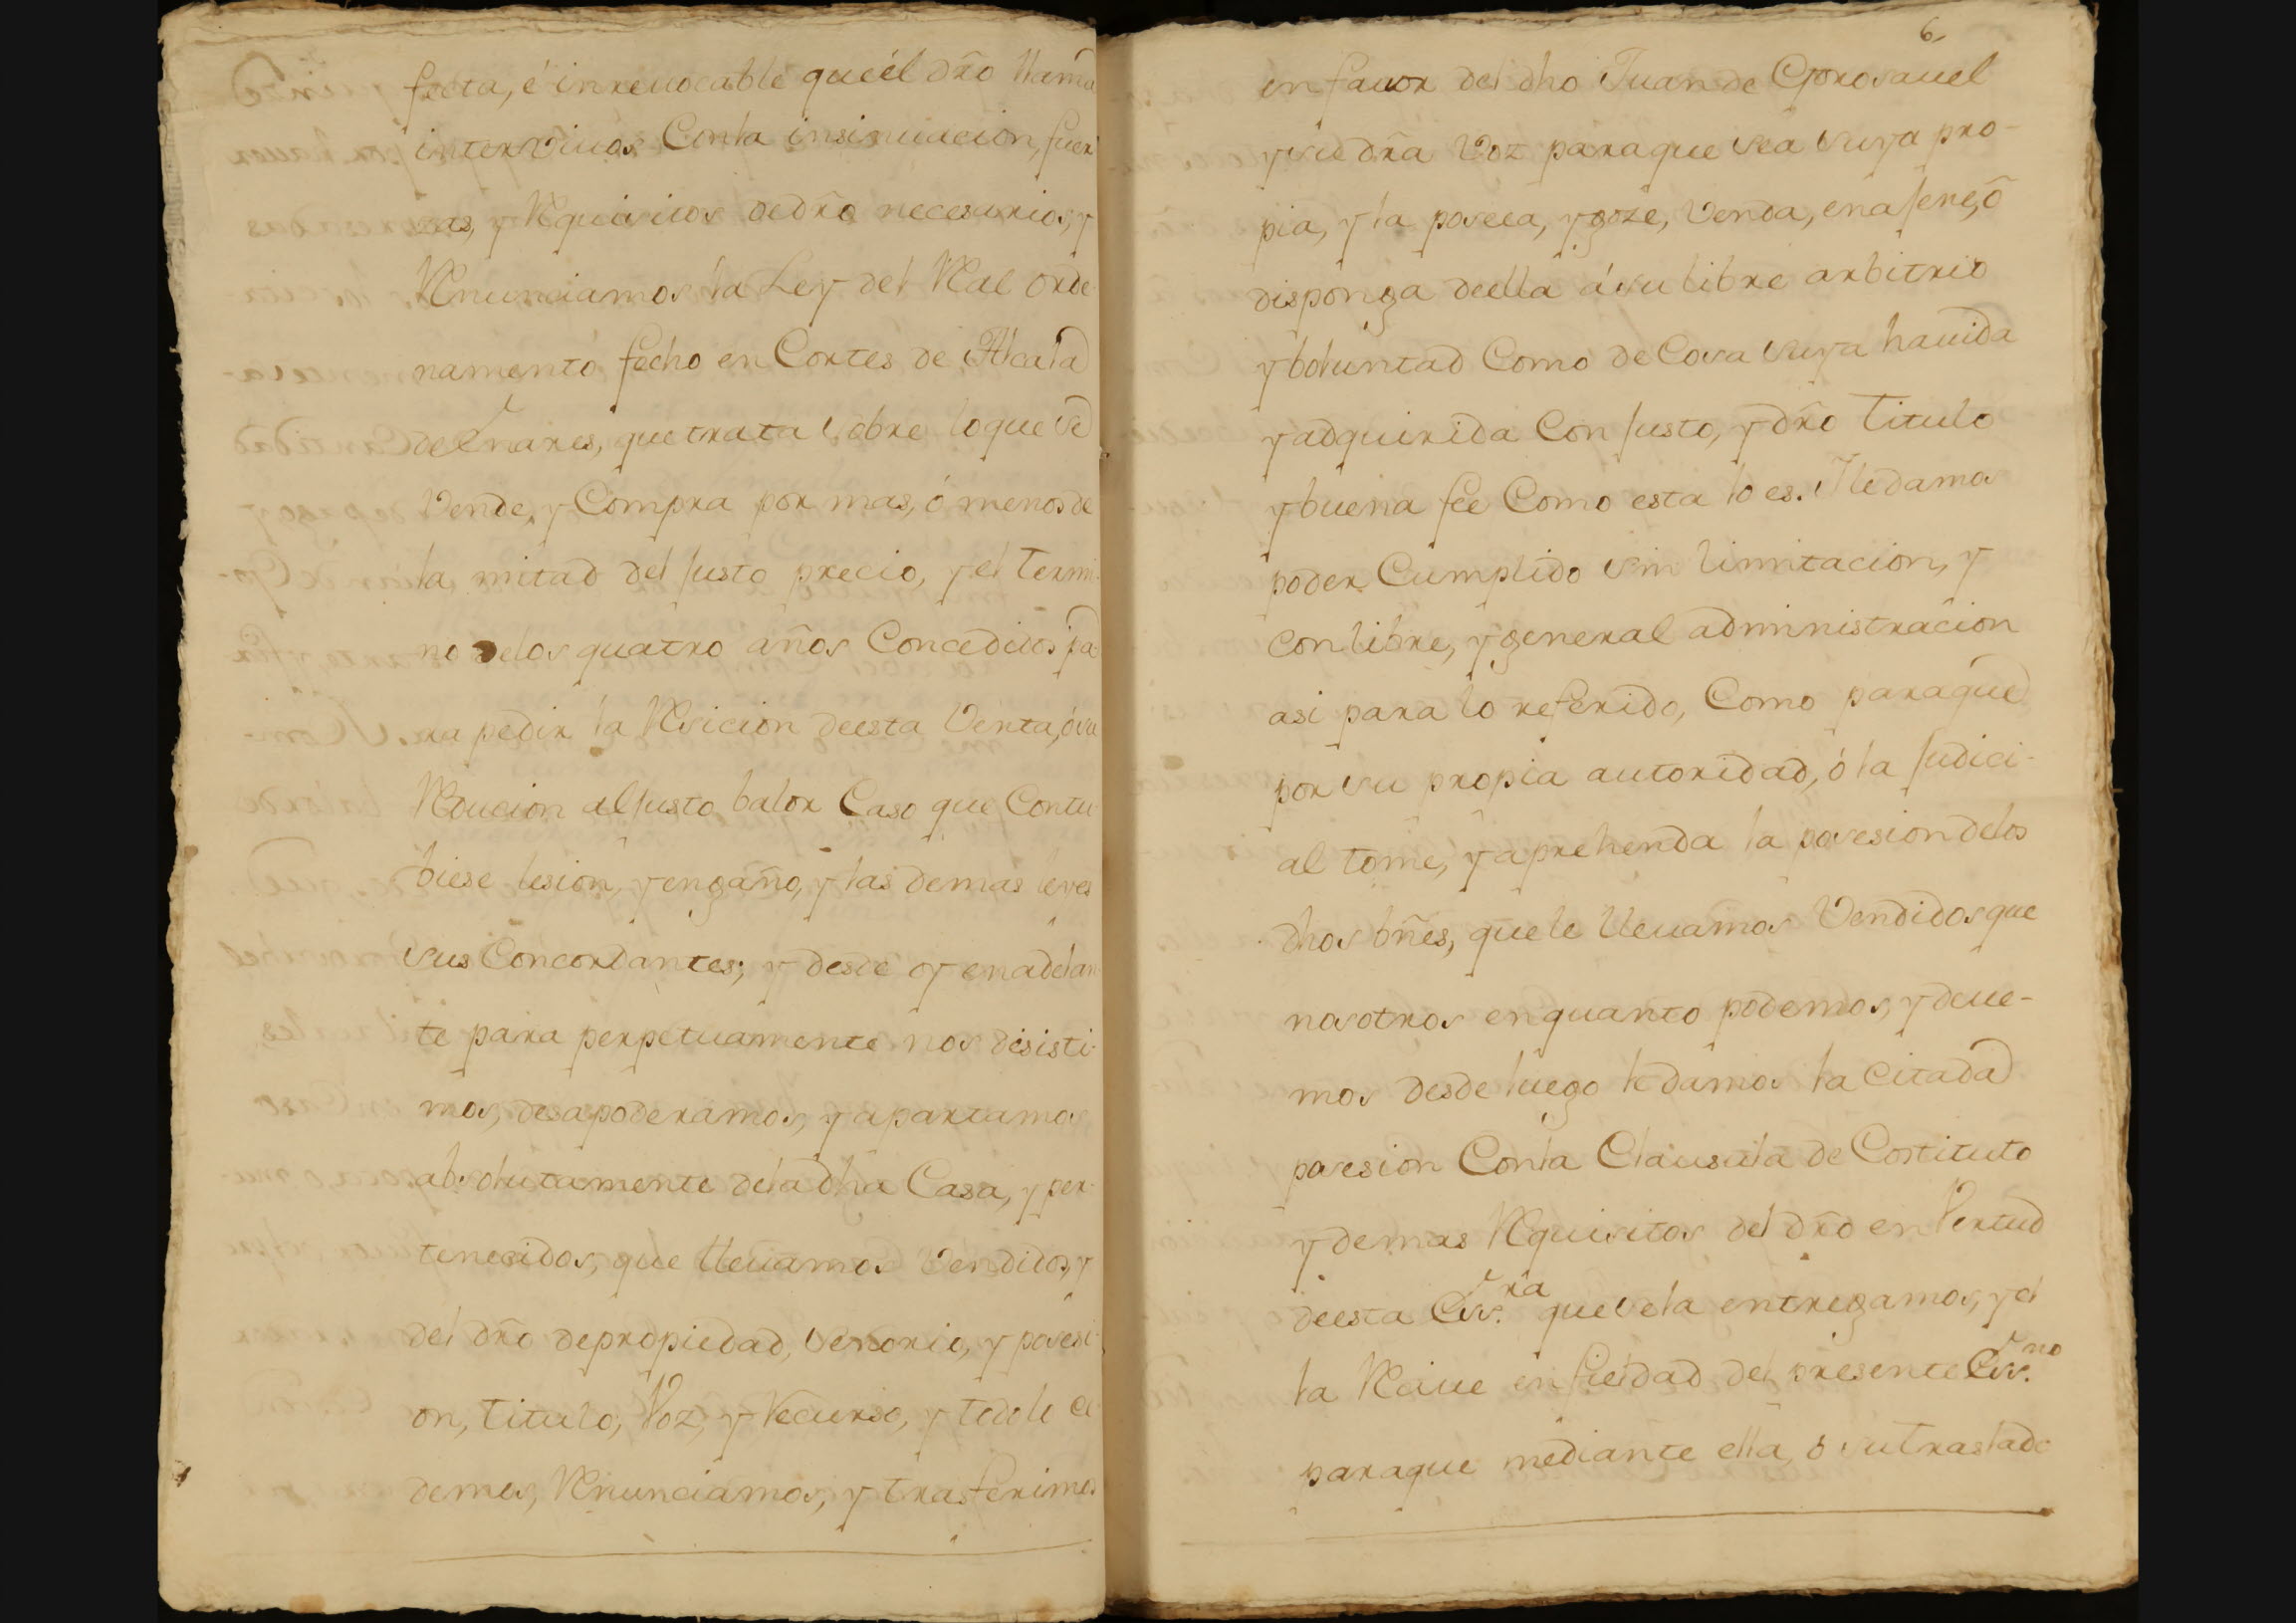 fecta, é inrreuocable queél dr̃o llama
intervivos Conla insinuacion, fuer
zas, y Requisitos dedr̃o necesarios, y
Renunciamos la Ley del Real Orde
namento fecho en Cortes de Alcala
de Enares, que trata sobre loque se
Vende, y Compra por mas, ó menos de
la mitad del Justo precio, y el termi
no delos quatro años Concedidos pa
ra pedir la Resicion deesta Venta, ó su
Reducion al Justo balor Caso que Contu
biese lesion, y engaño, y las demas leyes
sus Concordantes; y desde oy enadelan
te para perpetuamente nos desisti-
mos, desapoderamos, y apartamos
absolutamente dela dha Casa, y per-
tenecidos, que lleuamos Vendidos, y
del dr̃o depropiedad, señorio, y posesi-
on, titulo, Voz, y Recurso, y todo lo ce
demos, Renunciamos, y trasferimos
6,
en fauor del dho Juan de Gorosauel
y su dr̃a Voz paraque sea suya pro-
pia, y la poseea, y goze, Venda, enajene, ó
disponga deella á su libre arbitrio
y boluntad Como de Cosa suya hauida
y adquirida Con Justo, y dr̃o titulo
y buena fee Como esta lo es. Y le damos
poder Cumplido sin limitacion, y
con libre, y general administracion
asi para lo referido, Como paraque
por su propia autoridad, ó la Judici-
al tome, y aprehenda la posesion delos
dhos bñes, que le lleuamos Vendidos que
nosotros enquanto podemos, y deue-
mos desde luego le damos la Citada
posesion Conla Clausula de Costituto
y demas Requisitos del dr̃o en Vertud
deesta Ess.ra que se la entregamos, y el
la Reciue en fieldad del presente Ess.no
paraque mediante ella, ó su traslado